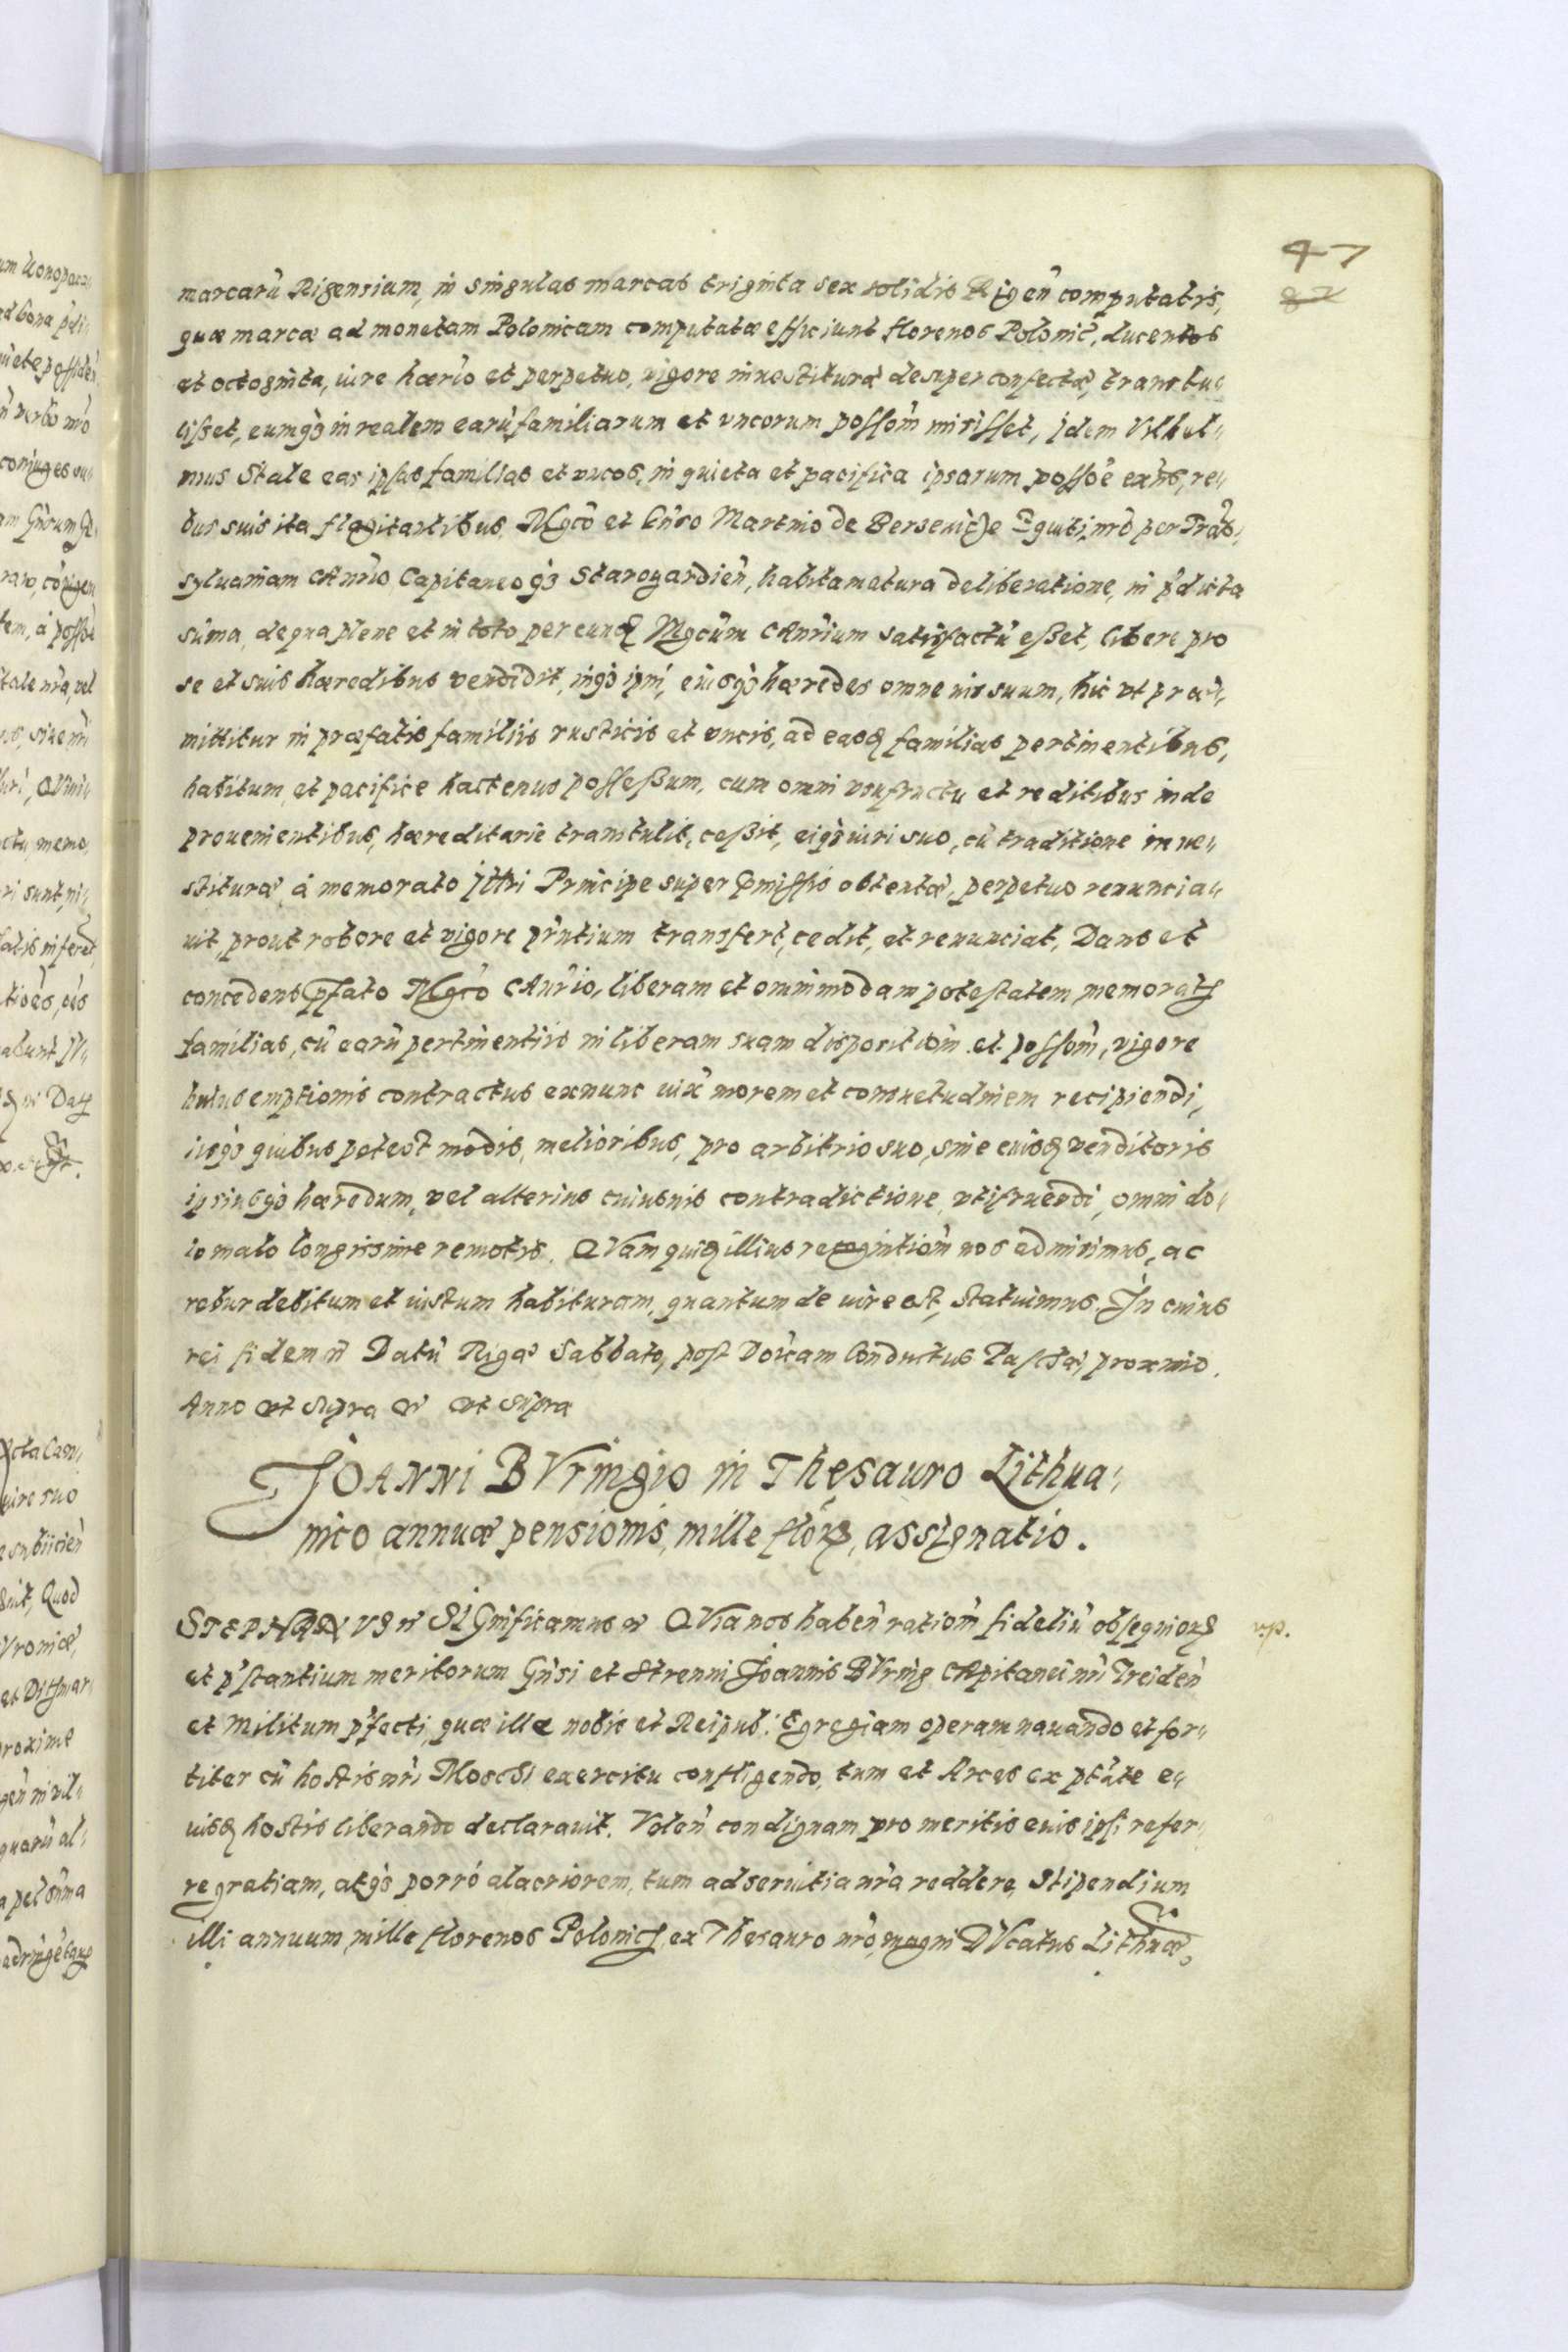 47
82
marcarũ Rigensium, in singulas marcas triginta sex solidis Rigeñ computatis,
quæ marcæ ad monetam Polonicam computatæ efficiunt florenos Polonic̃, ducentos
et octoginta, iure hærio et perpetuo, vigore inuestituræ desuper confectæ, transtu-
lisset, eumq́3 in realem earũ familiarum et vncorum possom̃ misisset, Idem Vilhel-
mus Stale eas ipsas familias et vncos, in quieta et pacifica ipsarum possoẽ exñs, re-
bus suis ita flagitantibus, Mgco et Gñso Martino de Berseuicze Equiti, nr̃o per Trãs-
syluaniam CAnr̃io Capitaneoq́3 Starogardień, habita matura deliberatione, in p̃dicta
sũma, de qua plene et in toto per eund. Mgcũm CAnr̃ium satisfactũ esset, libere pro
se et suis hæredibus vendidit, inq́3 ipm̃, eiusq́3 hæredes omne ius suum, hic vt præ-
mittitur in præfatis familiis rusticis et vncis, ad easq familias pertinentibus,
habitum et pacifice hactenus possessum, cum omni vsufructu et reditibus inde
prouenientibus, hæreditarie transtulit, cessit, eiq́3 iuri suo, cũ traditione inue-
stituræ, à memorato Illri Principe super p̃missis obtentæ, perpetuo renuncia-
uit, prout robore et vigore pñtium transfert, cedit, et renunciat, Dans et
concedens p̃fato Mgco CAnr̃io, liberam et omnimodam potestatem, memoratas
familias, cũ earũ pertinentiis in liberam suam dispositiom̃ et possom̃, vigore
huius emptionis contractus exnunc iux̃ morem et consuetudinem recipiendi,
iisq́3 quibus potest modis, melioribus, pro arbitrio suo, sine eiusd venditoris
ipsiusq́3 hæredum, vel alterius cuiusuis contradictione, vtifruendi, omni do-
lo malo longissime remotis. QVam quid illius recognitiom̃ nos admisimus, ac
robur debitum et iustum habituram, quantum de iure est, statuimus. In cuius
rei fidem Datũ Rigæ Sabbato, post Doĩcam Conductus Paschæ, proximo.
Anno vt supra vt supra
JOANNI BVringio in Thesauro Lithua-
nico annuæ pensionis, mille flor, assignatio.
STEPHANVS SIGnificamus QVia nos habeñ ratiom̃ fideliũ obsequior
v.p.
et p̃stantium meritorum Gñsi et Strenui Joannis BVring CApitanei nr̃i Treideñ
et Militum p̃fecti, quæ ille nobis et Reipub: Egregiam operam nauando et for-
titer cũ hostis nr̃i Moschi exercitu confligendo, tum et Arces ex ptãte e-
iusd hostis liberando declarauit. Voleñ condignam pro meritis euis ipsi refer-
re gratiam, atq́3 porró alacriorem, tum ad seruitia nr̃a reddere, Stipendium
illi annuum mille florenos Polonic, ex Thesauro nr̃o, magni DVcatus Lithuæ,